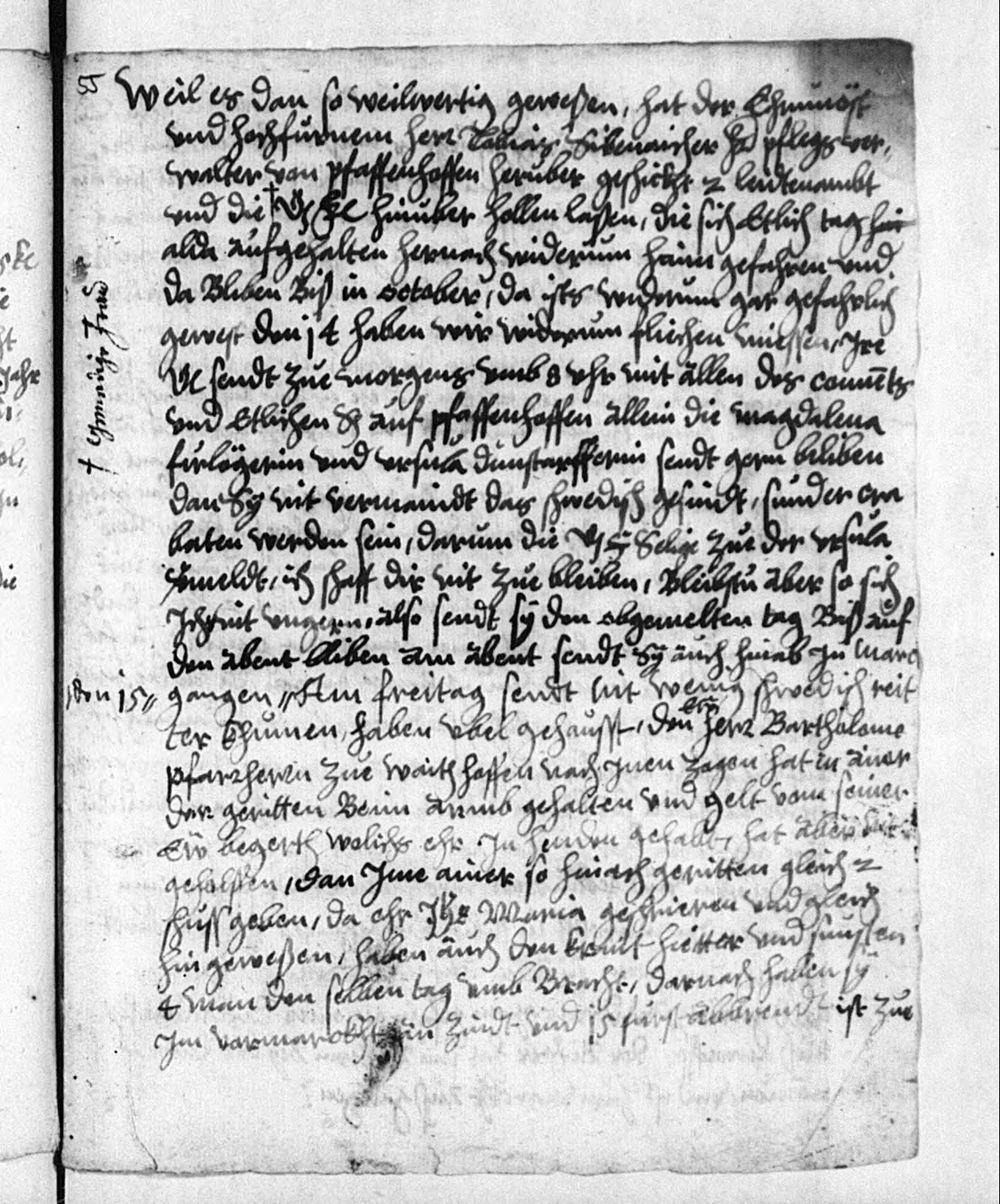 55 Weil es dan so weilwertig geweßen, hat der Ehrnvöst
vnd hochfürnem herr Tobias Sibenaicher pflegs ver,,
walter von pfaffenhoffen herüber geschickt 2 leidtenambt
vnd die hinüber hollen laßen, die sich Etlich tag hin
alda aufgehalten hernach widerumb haim gefahren vnd
da Bliben Biß in october, da ists widerumb gar gefahrlich
gewest den 14 haben wir widerumb fliechen miessen, Ire
sendt zue morgens vmb 8 vhr mit allen des convēts
vnd Etlichen auf pfaffenhoffen allein die magdalena
firlögerin vnd vrsula dunstarfferin sendt gern bliben
dan sÿ nit vermaindt das schwedisch gesindt, sunder cra
baten werden sein, darum die Selige zue der vrsula
gmeldt, ich schaff dir nit zue bleiben, bleibstu aber so sich
Ichs nit vngern, also sendt sÿ den obgemelten tag Biß auf
den abent bliben am abent sendt sÿ auch hinab In marck
den 15,, gangen,, Am freitag sendt nit wenig schwedisch reit
ter khumen, haben vbel gehausst, den herr Bartholome
pfarrherrn zue waithoffen nach Inen zogen hat in ainer
der geritten Beim armb gehalten vnd gelt vom seiner
begerth welichs ehr In henden gehabt, hat aber
geholffen, dan Ime ainer so hinach geritten gleich 2
schuss geben, da ehr Jhs Maria geschrieren vnd gleich
hin geweßen, haben auch den hietter vnd sunsten
4 man den selben tag vmb Bracht, darnach haben sÿ
Im vermarckht zindt vnd 15 first abbrendt ist zue